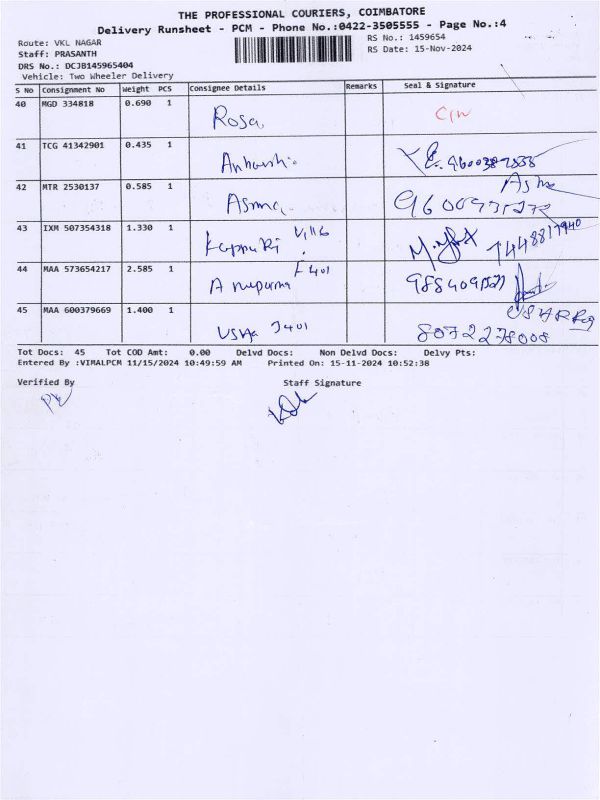 THE PROFESSIONAL COURIERS, COIMBATORE
Delivery Runsheet - PCM - Phone No.:0422-3505555 - Page No.:4
Route: VKL NAGAR RS No.: 1459654
Staff: PRASANTH RS Date: 15-Nov-2024
DRS No.: DCJB145965404
Vehicle: Two Wheeler Delivery
S No Consignment No Weight PCS Consignee Details Remarks Seal & Signature
40 MGD 334818 0.690 1 Rosa
41 TCG 41342901 0.435 1
42 MTR 2530137 0.585 1 Asma
43 IXM 507354318 1.330 1
44 MAA 573654217 2.585 1 Anupama F401
45 MAA 600379669 1.400 1 Usha J401 8072278008
Tot Docs: 45 Tot COD Amt: 0.00 Delvd Docs: Non Delvd Docs: Delvy Pts:
Entered By :VIMALPCM 11/15/2024 10:49:59 AM Printed On: 15-11-2024 10:52:38
Verified By Staff Signature